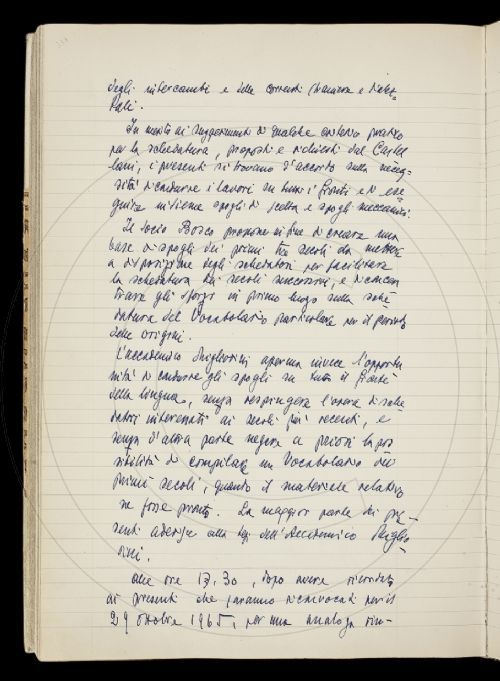 degli intercambi e delle correnti straniere e dialet-
tali.
In merito ai suggerimenti di qualche criterio pratico
per la schedatura, proposti e richiesti dal Castel
lani, i presenti si trovano d'accordo sulla neces-
sità di condurre i lavori su tutti i fronti e di ese-
guire insieme spogli di scelta e spogli meccanici.
Il Socio Bosco propone infine di creare una
base di spogli dei primi tre secoli da mettere
a disposizione degli schedatori per facilitare
la schedatura dei secoli successivi, e di concen
trare gli sforzi in primo luogo sulla sche-
datura del Vocabolario particolare per il periodo
delle origini.
L'accademico Migliorini afferma invece l'opportu
nità di condurre gli spogli su tutto il fronte
della lingua, senza respingere l'opera di sche-
datori interessati ai secoli più recenti, e
senza d'altra parte negare a priori la pos
sibilità di compilare un Vocabolario dei
primi secoli, quando il materiale relativo
ne fosse pronto. La maggior parte dei pre-
senti aderisce alla tesi dell'Accademico Miglio
rini.
Alle ore 13,30, dopo avere ricordato
ai presenti che saranno riconvocati per il
29 ottobre 1965, per una analoga riu-